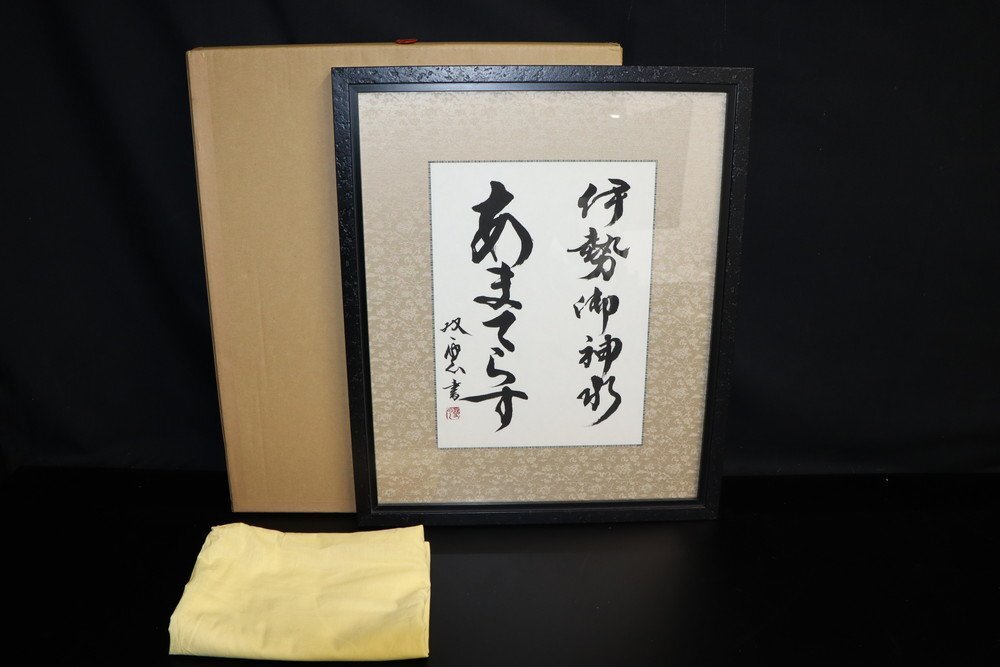 伊勢御神水
あまてらす
書